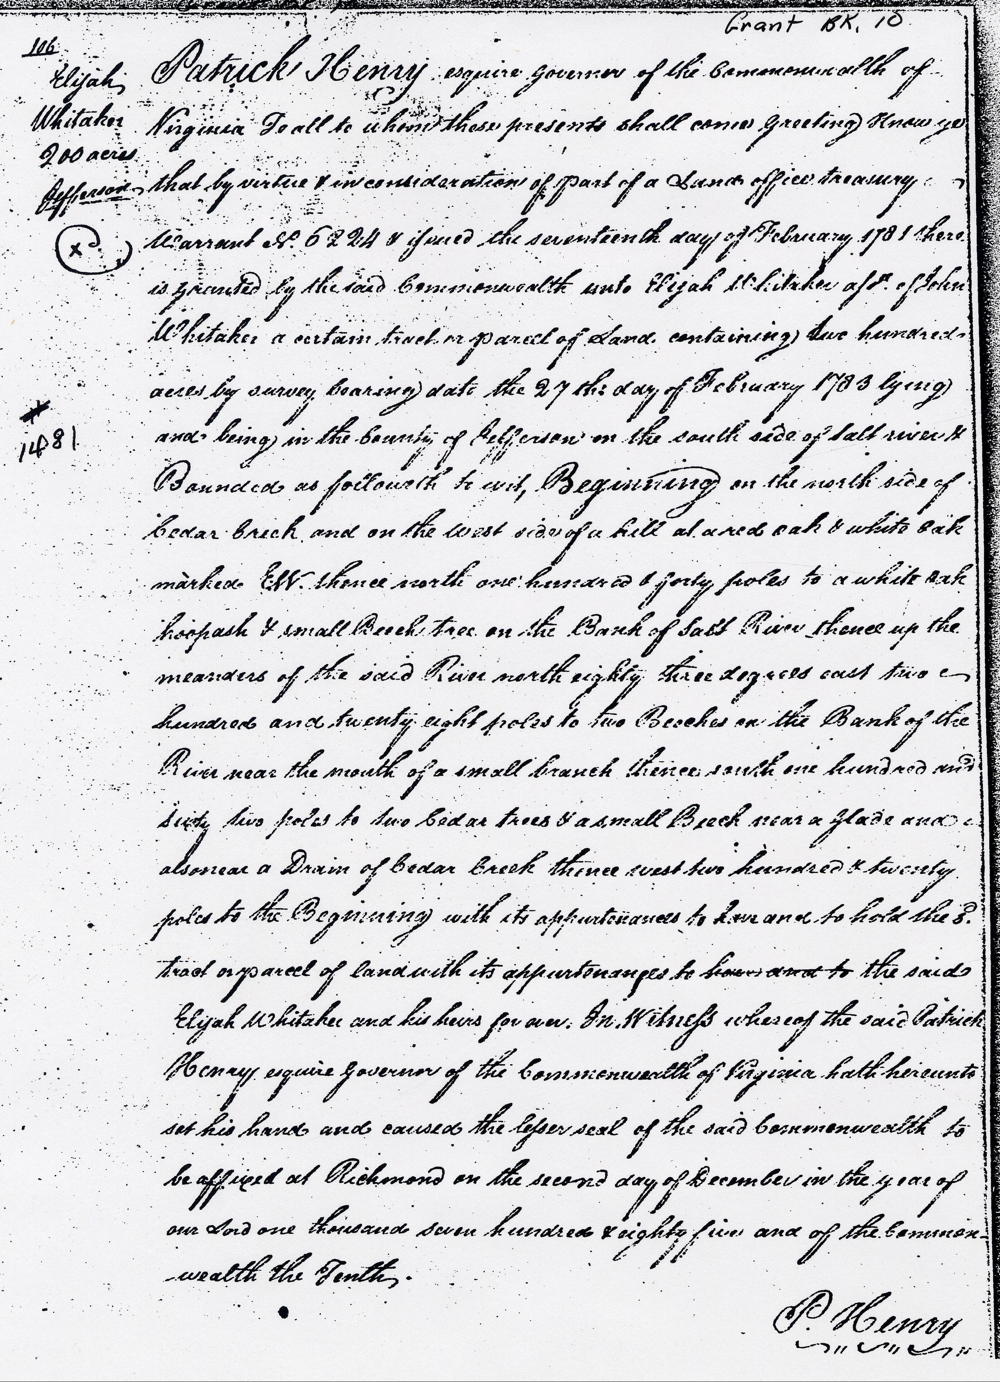 Grant BK. 10
106
Elijah
Whitaker
200 acres
Jefferson
Xd.
1481
Patrick Henry esquire Governor of the Commonwealth of
Virginia To all to whom these presents shall come Greeting Know ye
that by virtue & in consideration of part of a Land office treasury
Warrant No. 6224 & issued the seventeenth day of February 1781 there
is granted by the said Commonwealth unto Elijah Whitaker asse. of John
Whitaker a certain tract or parcel of Land containing two hundred
acres by survey bearing date the 27 th day of February 1783 lying
and being in the County of Jefferson on the south side of Salt river &
Bounded as followeth to wit, Beginning on the north side of
Cedar Creek and on the West side of a hill at a red oak & white oak
marked EW. thence north one hundred & forty poles to a white oak
hoopash & small Beech tree on the Bank of Salt River thence up the
meanders of the said River north eighty three degrees east two
hundred and twenty eight poles to two Beeches on the Bank of the
River near the mouth of a small branch thence south one hundred and
sixty two poles to two Cedar trees & a small Beech near a Glade and
also near a Drain of Cedar Creek thence west two hundred & twenty
poles to the Beginning with its appurtenances to have and to hold the sd.
tract or parcel of land with its appurtenances to have and to the said
Elijah Whitaker and his heirs for ever. In Witness whereof the said Patrick
Henry esquire Governor of the Commonwealth of Virginia hath hereunto
set his hand and caused the lesser seal of the said Commonwealth to
be affixed at Richmond on the second day of December in the year of
our Lord one thousand seven hundred & eighty five and of the Common-
-wealth the Tenth.
P. Henry